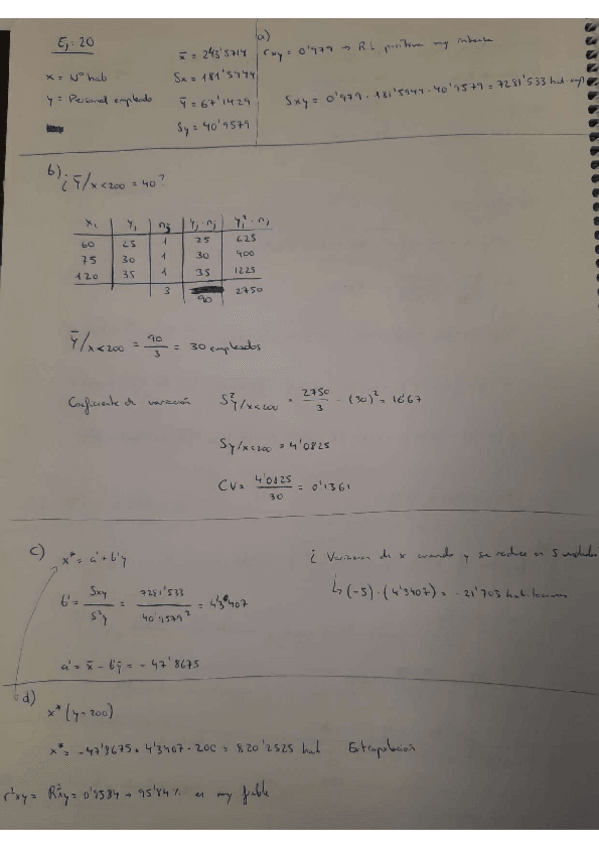 Ej: 20
x = Nº hab
y = Personal empleado
x̄ = 243'5714
Sx = 181'5944
ȳ = 67'1429
Sy = 40'9579
a)
rxy = 0'979 → RL positiva muy intensa
Sxy = 0'979 · 181'5944 · 40'9579 = 7281'533
b) ¿ ȳ/x<200 = 40?
xi yi nj yj·nj yj²·nj
60 25 1 25 625
75 30 1 30 900
120 35 1 35 1225
3 90 2750
ȳ/x<200 = 90/3 = 30 empleados
Coeficiente de variación S²y/x<200 = 2750/3 - (30)² = 16'67
Sy/x<200 = 4'0825
CV = 4'0825/30 = 0'1361
c) x* = a' + b'y
b' = Sxy/S²y = 7281'533/40'9579² = 4'3407
a' = x̄ - b'ȳ = -47'8675
¿ Variación de x cuando y se reduce en 5
↳ (-5) · (4'3407) = -21'703
d)
x* (y=200)
x* = -47'8675 + 4'3407 · 200 = 820'2525 hab Extrapolación
r²xy = R²xy = 0'9584 → 95'84% es muy fiable